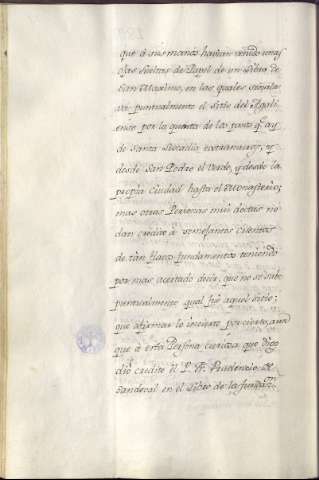 que á sus manos havian venido unas
ojas sueltas de Papel de un Libro de
San Maximo, en las quales señala-
va puntualmente el sitio del Agali-
ense por la quenta de los pasos q.e ay
de Santa Leocadia extramuros, y
desde San Pedro el Verde, y desde la
propia Ciudad hasta el Monasterio;
mas otras Personas mui doctas no
dan credito á semejantes cuentas
de tan flaco fundamento teniendo
por mas acertado decir, que no se sabe
puntualmente qual fué aquel sitio;
que afirmar lo incierto por cierto, aun
que á esta Persona curiosa que digo
dió credito el P. Fr. Prudencio de
Sandoval en el Libro de la fundaz.n